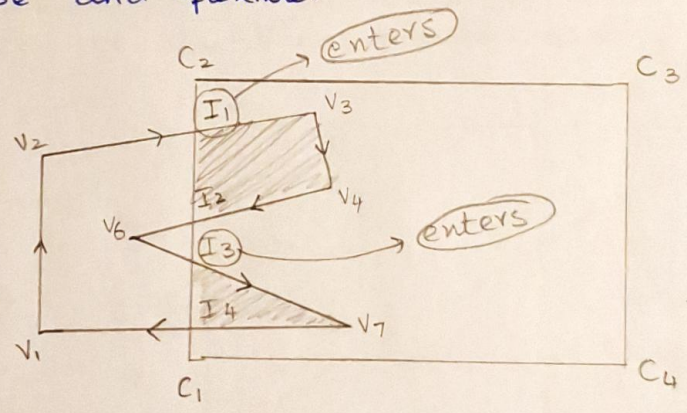 and
enters
C2
C3
I1
V3
V2
I2
V4
V6
I3
enters
I4
V7
V1
C1
C4